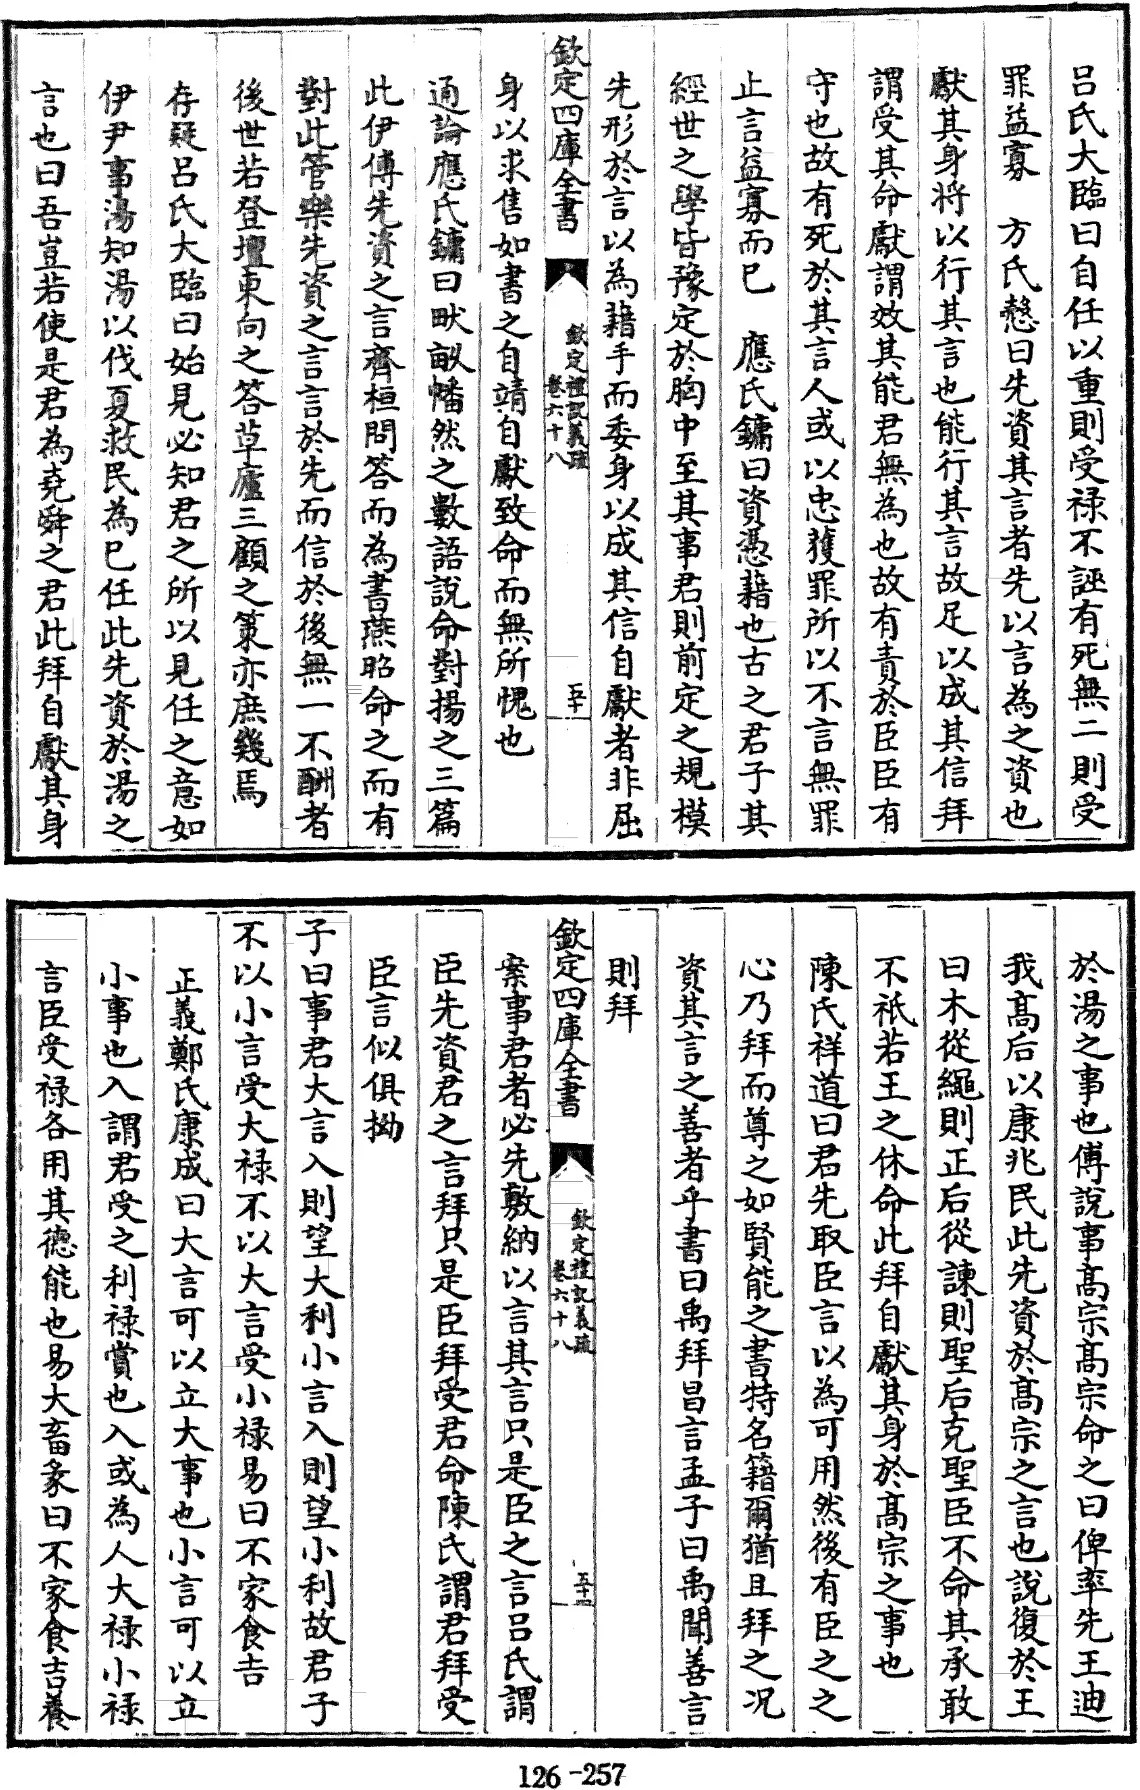 呂氏大臨曰自任以重則受祿不誣有死無二則受
罪益寡　方氏慤曰先資其言者先以言為之資也
獻其身將以行其言也能行其言故足以成其信拜
謂受其命獻謂效其能君無為也故有責於臣臣有
守也故有死於其言人或以忠獲罪所以不言無罪
止言益寡而已　應氏鏞曰資憑藉也古之君子其
經世之學皆豫定於胸中至其事君則前定之規模
先形於言以為藉手而委身以成其信自獻者非屈
欽定四庫全書
欽定禮記義疏
卷六十八
五十
身以求售如書之自靖自獻致命而無所愧也
通論應氏鏞曰畎畝幡然之數語說命對揚之三篇
此伊傅先資之言齊桓問答而為書燕昭命之而有
對此管樂先資之言言於先而信於後無一不酬者
後世若登壇東向之答草廬三顧之策亦庶幾焉
存疑呂氏大臨曰始見必知君之所以見任之意如
伊尹事湯知湯以伐夏救民為已任此先資於湯之
言也曰吾豈若使是君為堯舜之君此拜自獻其身
於湯之事也傅說事高宗高宗命之曰俾率先王迪
我高后以康兆民此先資於高宗之言也說復於王
曰木從繩則正后從諫則聖后克聖臣不命其承敢
不祇若王之休命此拜自獻其身於高宗之事也
陳氏祥道曰君先取臣言以為可用然後有臣之之
心乃拜而尊之如賢能之書特名籍爾猶且拜之况
資其言之善者乎書曰禹拜昌言孟子曰禹聞善言
則拜
欽定四庫全書
欽定禮記義疏
卷六十八
五十一
案事君者必先敷納以言其言只是臣之言呂氏謂
臣先資君之言拜只是臣拜受君命陳氏謂君拜受
臣言似俱拗
子曰事君大言入則望大利小言入則望小利故君子
不以小言受大祿不以大言受小祿易曰不家食吉
正義鄭氏康成曰大言可以立大事也小言可以立
小事也入謂君受之利祿賞也入或為人大祿小祿
言臣受祿各用其德能也易大畜彖曰不家食吉養
126-257